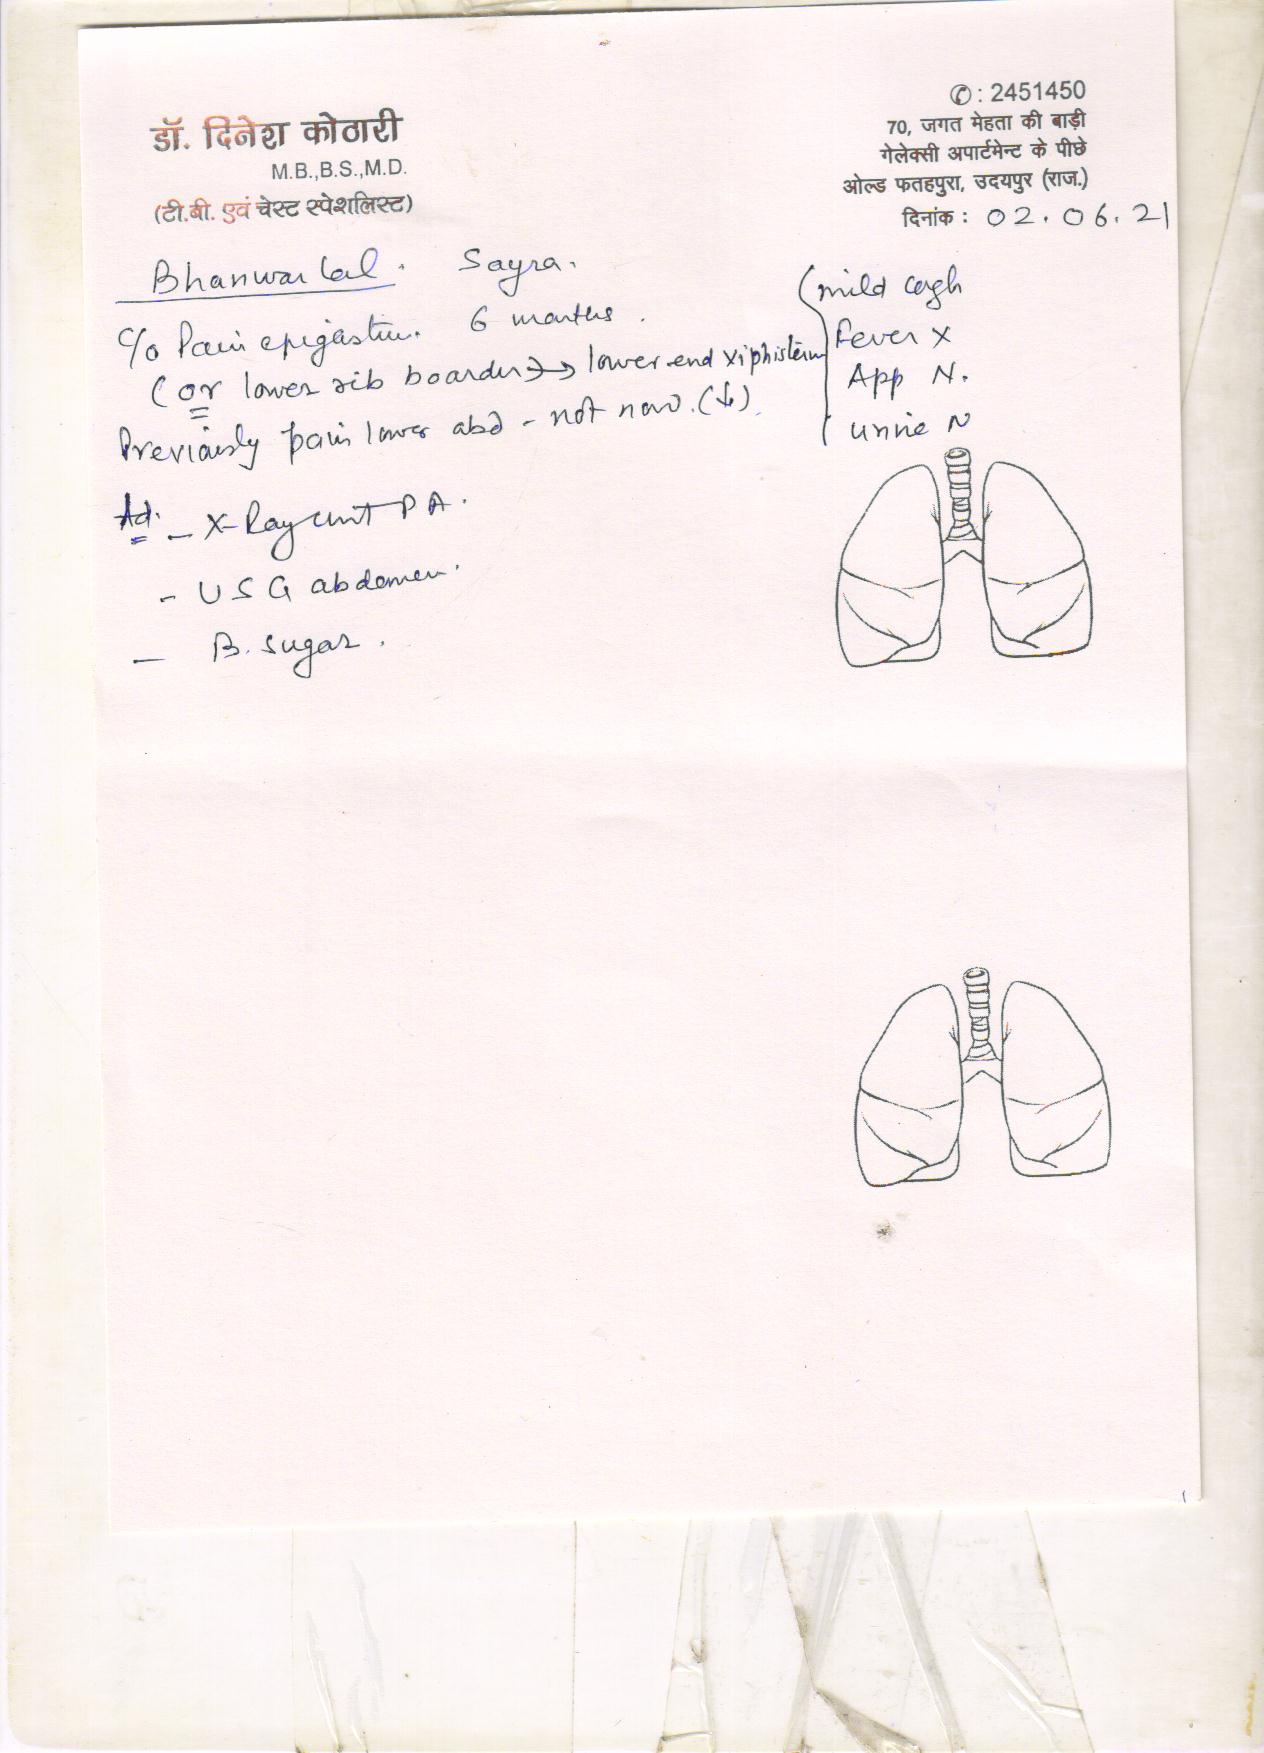 डॉ. दिनेश कोठारी
M.B.,B.S.,M.D.
(टी.बी. एवं चेस्ट स्पेशलिस्ट)
✆ : 2451450
70, जगत मेहता की बाड़ी
गेलेक्सी अपार्टमेन्ट के पीछे
ओल्ड फतहपुरा, उदयपुर (राज.)
दिनांक : 02.06.21
Bhanwar Lal. Sayra.
C/o Pain epigastriu. 6 months.
(or lower rib boarder → lower end xiphisternum
Previously pain lower abd - not now. (↓).
(mild cough
Fever X
App N.
urine N
Ad.
- X-Ray chest PA.
- USG abdomen.
- B. sugar.